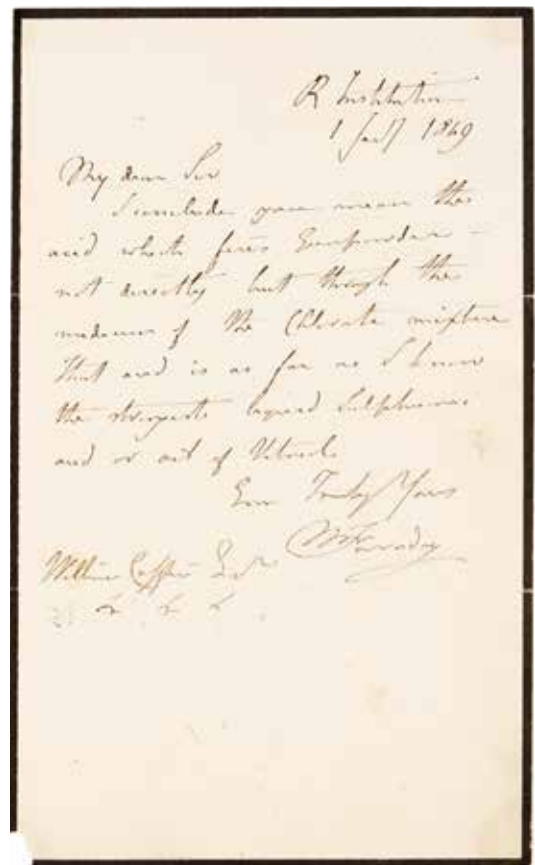 R Institution
1 Jany 1849
My dear Sir
I conclude you mean the
acid which fires Gunpowder -
not directly but through the
medium of the Chlorate mixture
That acid is as far as I know
the strongest liquid Sulphuric
acid or oil of Vitriol
Ever Truly Yours
M Faraday
William Esqr
&c &c &c